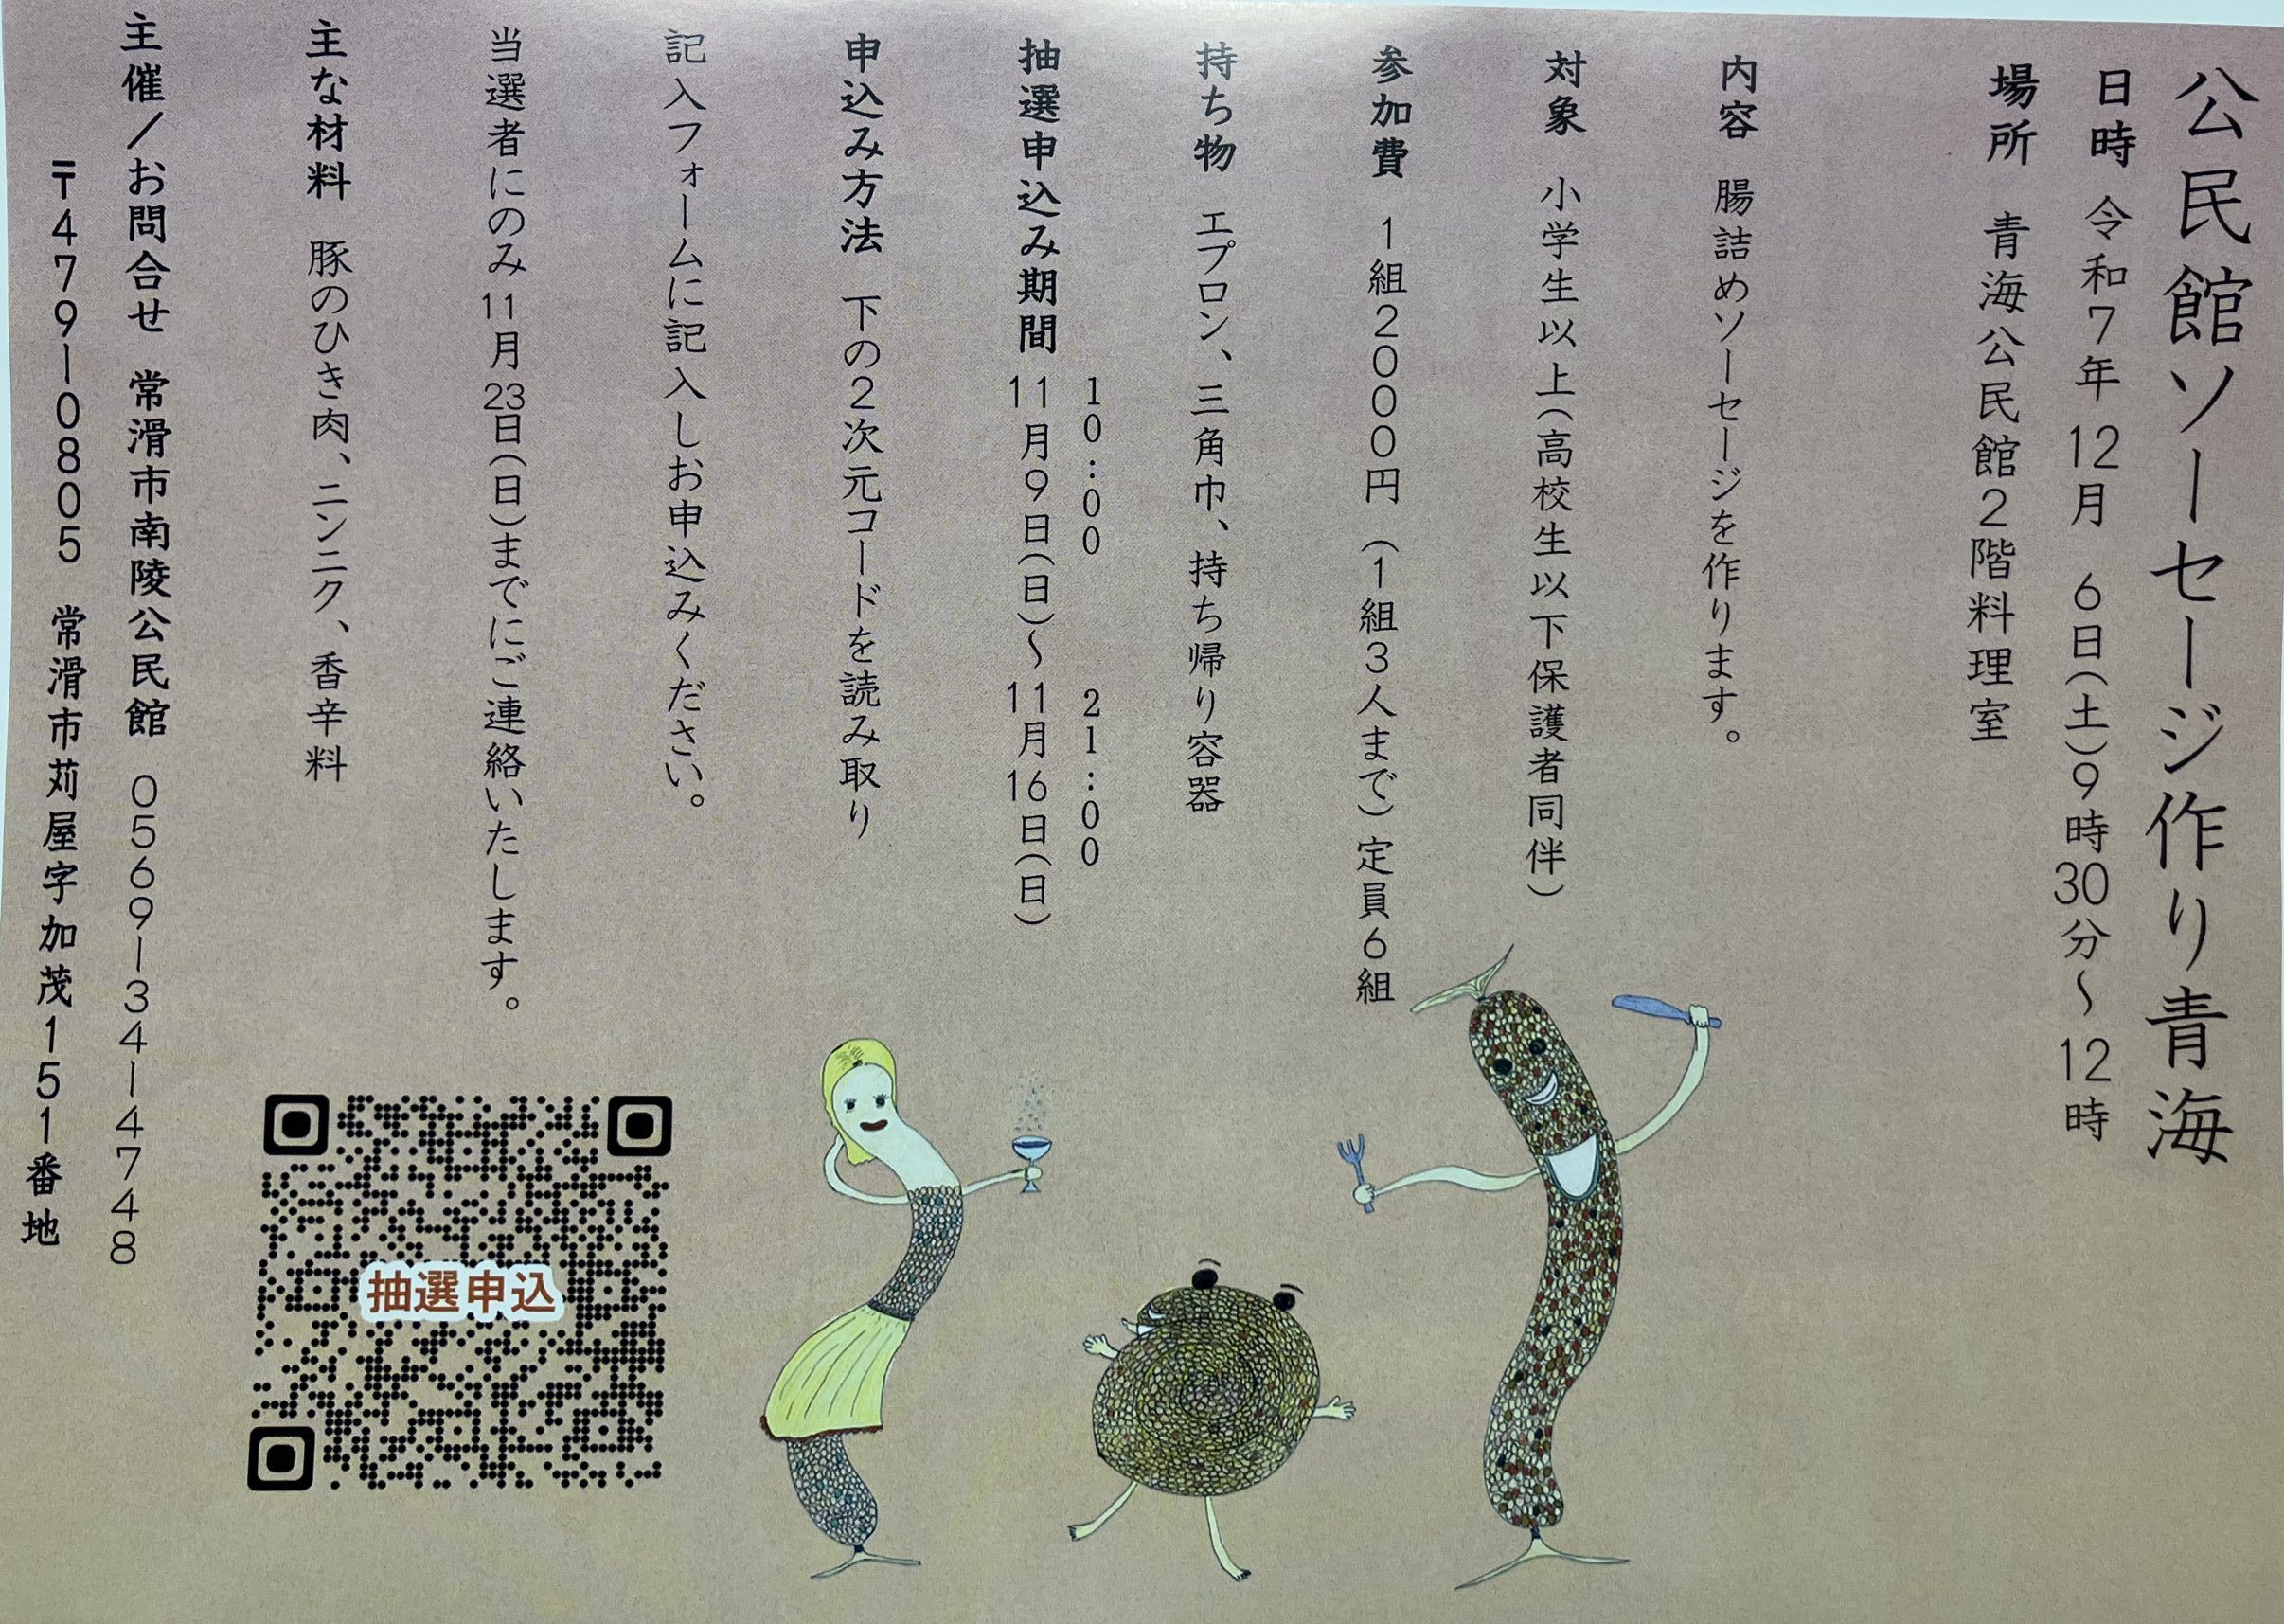 公民館ソーセージ作り青海
日時 令和7年12月 6日(土)9時30分~12時
場所 青海公民館2階料理室
内容 腸詰めソーセージを作ります。
対象 小学生以上(高校生以下保護者同伴)
参加費 1組2000円(1組3人まで)定員6組
持ち物 エプロン、三角巾、持ち帰り容器
10:00 21:00
抽選申込み期間 11月9日(日)~11月16日(日)
申込み方法 下の2次元コードを読み取り
記入フォームに記入しお申込みください。
当選者にのみ11月23日(日)までにご連絡いたします。
主な材料 豚のひき肉、ニンニク、香辛料
主催/お問合せ 常滑市南陵公民館 0569-34-4748
〒479-0805 常滑市苅屋字加茂151番地
抽選申込